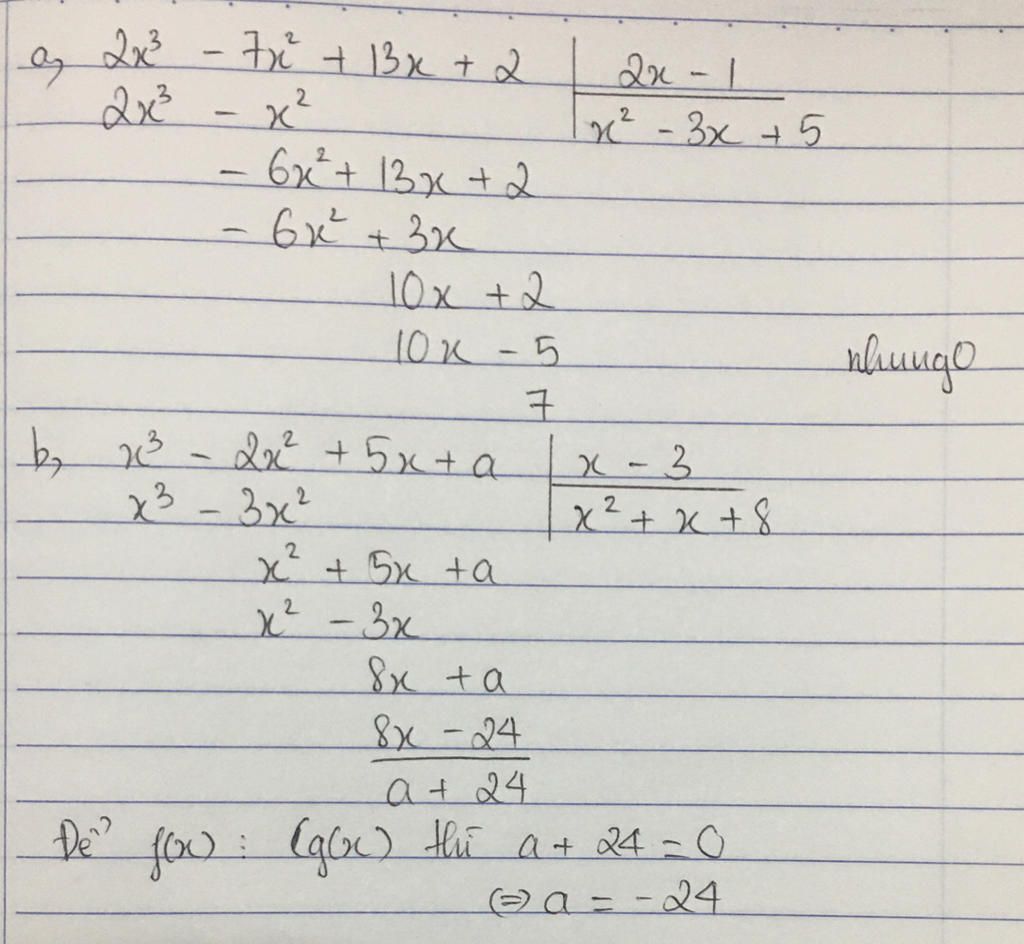 a, 2x³ - 7x² + 13x + 2 | 2x - 1
2x³ - x² | x² - 3x + 5
- 6x² + 13x + 2
- 6x² + 3x
10x + 2
10x - 5
nhung0
7
b, x³ - 2x² + 5x + a | x - 3
x³ - 3x² | x² + x + 8
x² + 5x + a
x² - 3x
8x + a
8x - 24
a + 24
Để f(x) : (g(x) thì a + 24 = 0
(=) a = -24